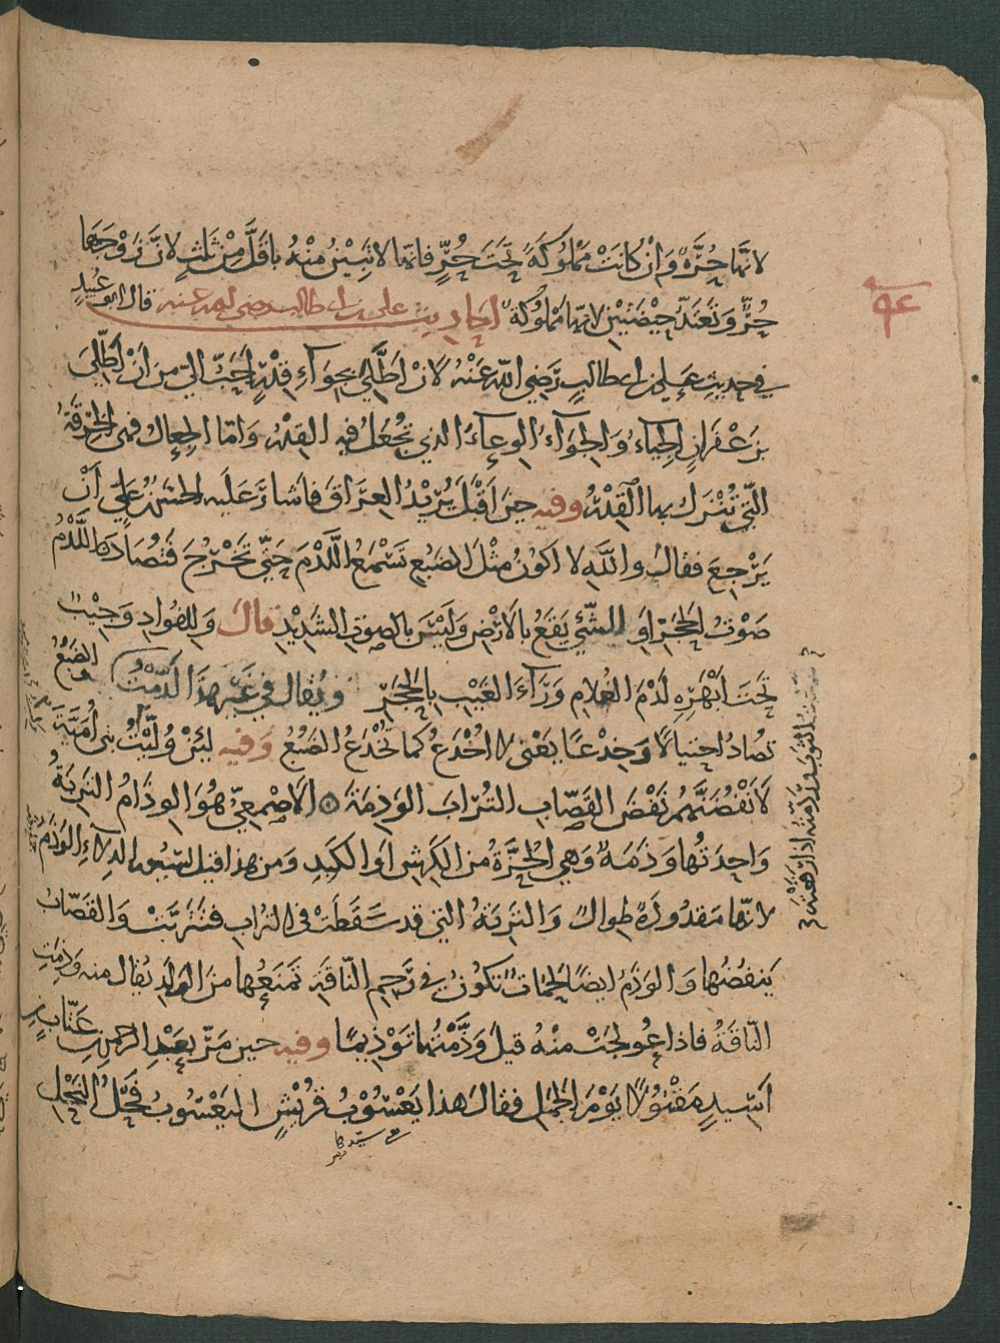 لانَّها حُرَّةٌ وَاِنْ كَانَتْ مَمْلُوكَةً تَحْتَ حُرٍّ فانّها لا تَبِيْنُ مِنْهُ باقَلَّ مِنْ ثَلثٍ لانَّ زَوْجَهَا
حُرٌّ وَتَعْتَدُّ حَيْضَتَيْنِ لانّها مَمْلُوكَةٌ احاديث علي بن ابي طالب رضي الله عنه قال ابو عُبَيدٍ
في حديث عَلي بن ابي طالبٍ رَّضِي اللّه عَنْهُ لانْ اَطَّلِيَ بجِوَآءِ قِدْرٍ اَحَبُّ اليّ من اَنْ اَطَّلِيَ
بزَعْفَرانٍ الجِيَاءُ وَالجِوَآءُ الوِعِاءُ الذي تُجْعَلُ فيه القِدْرُ وَامّا الجِعالُ فهى الخِرْقَةُ
الَّتِي تُنْزَلُ بها القِدْرُ وفيه حينَ اَقْبَلَ يُرِيْدُ العِرَاقَ فاَشارَ عَلَيه الحسَنُ بْنُ عَلي اَنْ
يَرْجِعَ فقالَ واللَّهِ لا اَكُونُ مثْلَ الضَبُعِ تَسْمَعُ اللَّدْمَ حَتّى تَخْرُجَ فَتُصادَ اللَّدْمُ
صَوْتُ الحَجَرِ اَوِ الشّئِ يَقَعُ بالاَرْضِ وَلَيْسَ بالصوتِ الشَدِيْدِ قالَ وَلِلفُوادِ وَجِيْبٌ
تَحْتَ اَبْهَرِهِ لَدْمَ الغُلامِ وَرَآءَ الغَيْبِ بِالحَجَرِ ويُقال في غَيْرِ هذَا لَدَمْتُ الضَبُعُ
تُصادُ احتيالًا وَخِدْعًا يَعْنى لا اُخْدَعُ كما تُخْدَعُ الضَبُعُ وَفيه لَئِنْ وُلِّيْتُ بنى اُمَيَّةَ
لَاَنْفُضَنَّهُمْ نَفْضَ القَصّابِ التُرَابَ الوَذِمَةَ الاَصْمَعِيُّ هُوَ الوِذَامُ التَرِبَةُ
وَاحِدَتُها وَذَمَةٌ وَهيَ الحُزَّةُ من الكَرِشِ اَوِ الكَبِدِ وَمن هذا قيل لسُيُورِ الدِلاءِ الوَذَمُ
لانّها مَقدُودَةٌ طِوالٌ وَالتَرِبَةُ التي قد سَقَطَتْ في التُرابِ فتَتَرَّبَتْ وَالقَصّابُ
يَنفُضُها وَالوَذَمُ ايضًا لحَمَاتٌ تَكُونُ في رَحِمِ النّاقَةِ تَمْنَعُها مِنَ الوَلَدِ يُقال منه وَذِمَتِ
النّاقَةُ فاذا عُولجَتْ منْهُ قيلَ وَذَّمْتُها تَوْذِيمًا وفيه حينَ مَرّ بعَبْدِ الرحمن بن عَتّابِ بنِ
اَسِيدٍ مَقْتُولًا يَوْمَ الجَمَلِ فقال هَذا يَعْسُوْبُ قُرَيْشٍ اليَعْسُوبُ فَحْلُ النَحْلِ